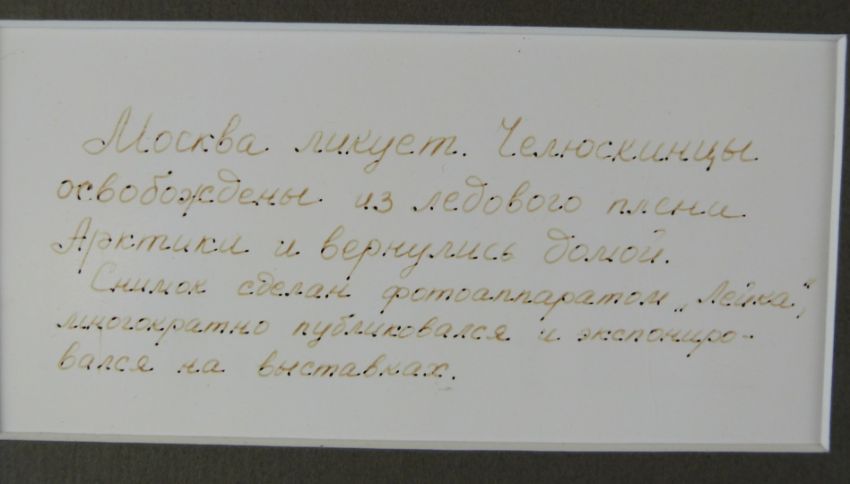 Москва ликует. Челюскинцы
освобождены из ледового плена
Арктики и вернулись домой.
Снимок сделан фотоаппаратом „Лейка",
многократно публиковался и экспониро-
вался на выставках.